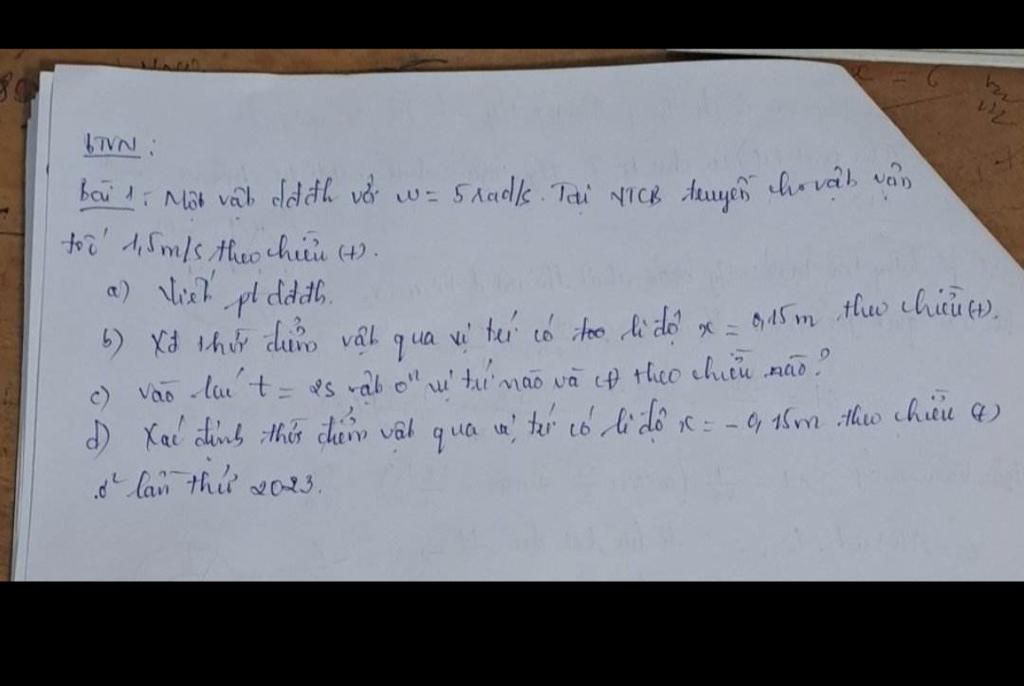 BTVN:
Bài 1: Một vật dđđh với ω = 5 rad/s. Tại VTCB truyền cho vật vận
tốc 1,5m/s theo chiều (+).
a) Viết pt dđđh.
b) Xđ thời điểm vật qua vị trí có li độ x = 0,15m theo chiều (+).
c) Vào lúc t = 2s vật ở vị trí nào và cđ theo chiều nào?
d) Xác định thời điểm vật qua vị trí có li độ x = - 0,15m theo chiều
lần thứ 2023.
x = 6